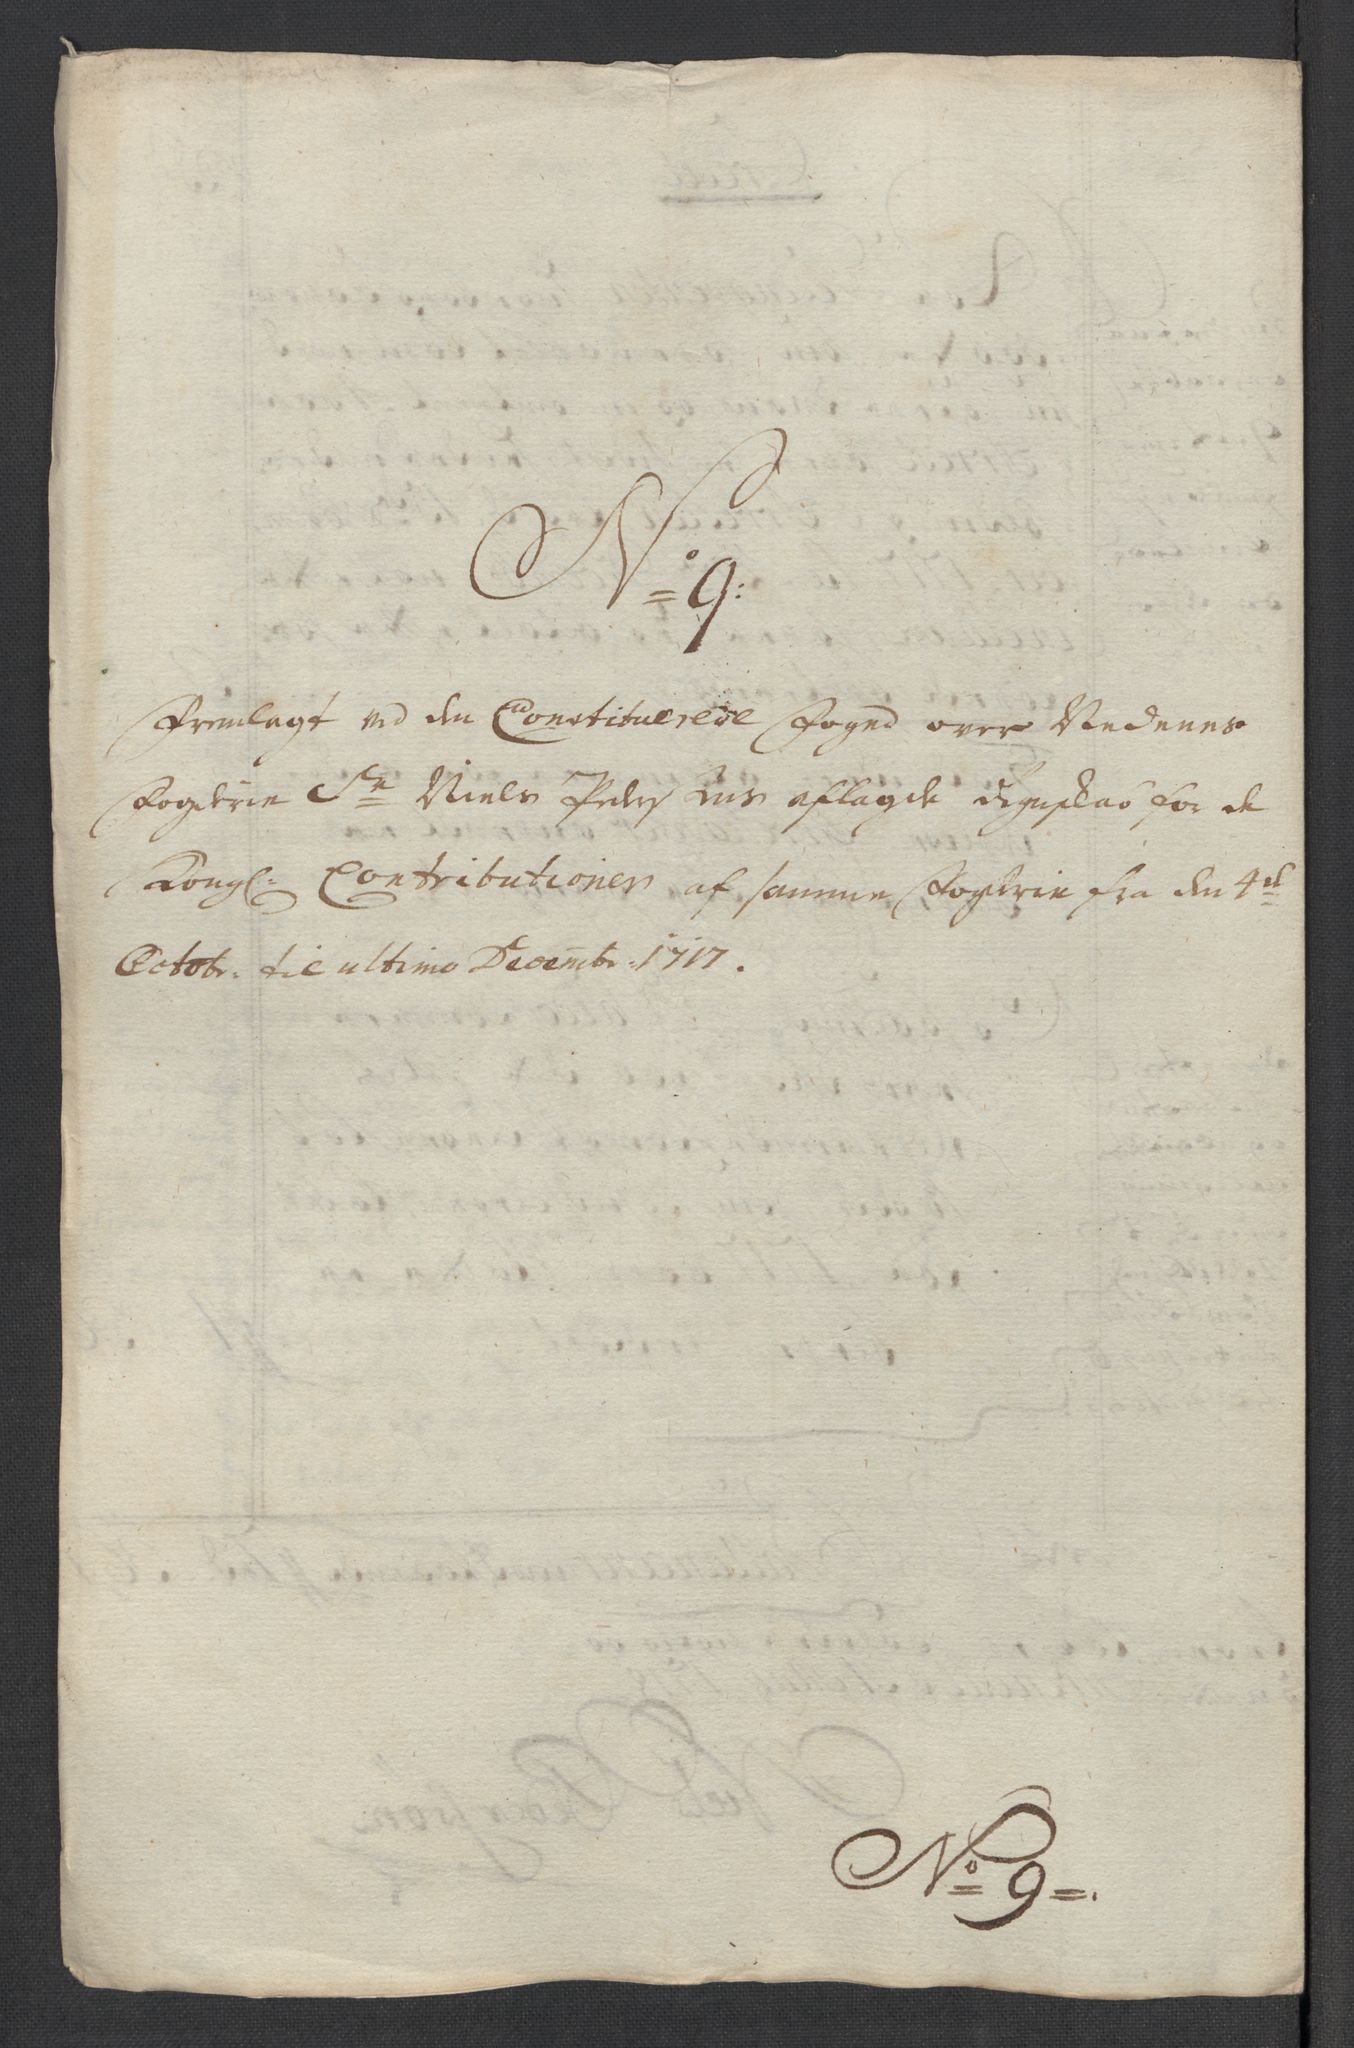 No 9:
Fremlagt ved den Constituerede Foged over Nedenes
Fogderie Sr Niels Peders hans aflagde Regnskab for de
Kongl: Contributioner af samme Fogderie fra den 4de
Octobr: til ultimo Decembr: 1717.
No 9